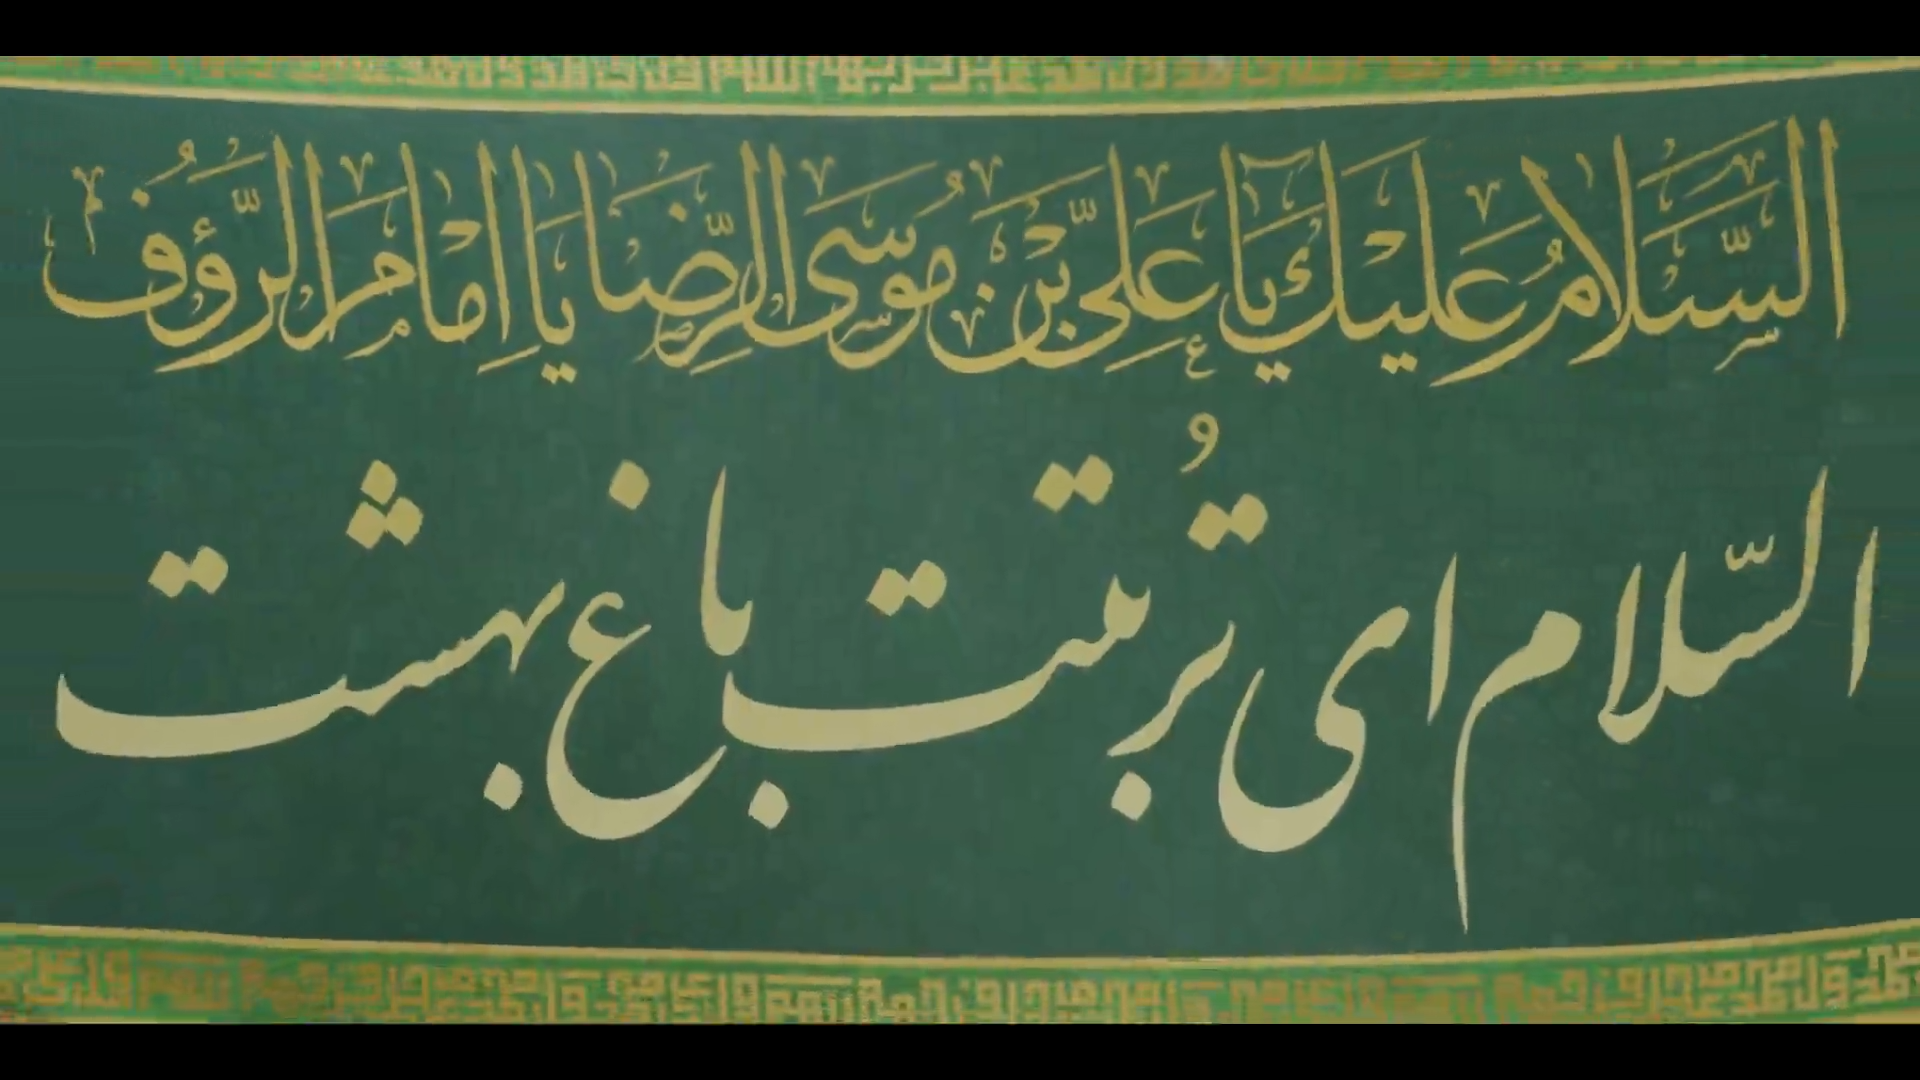 السَّلَامُ عَلَيْكَ يَا عَلِيَّ بْنَ مُوسَى الرِّضَا يَا اِمَامَ الرَّؤُفُ
السّلام ای تُربتت باغ بهشت